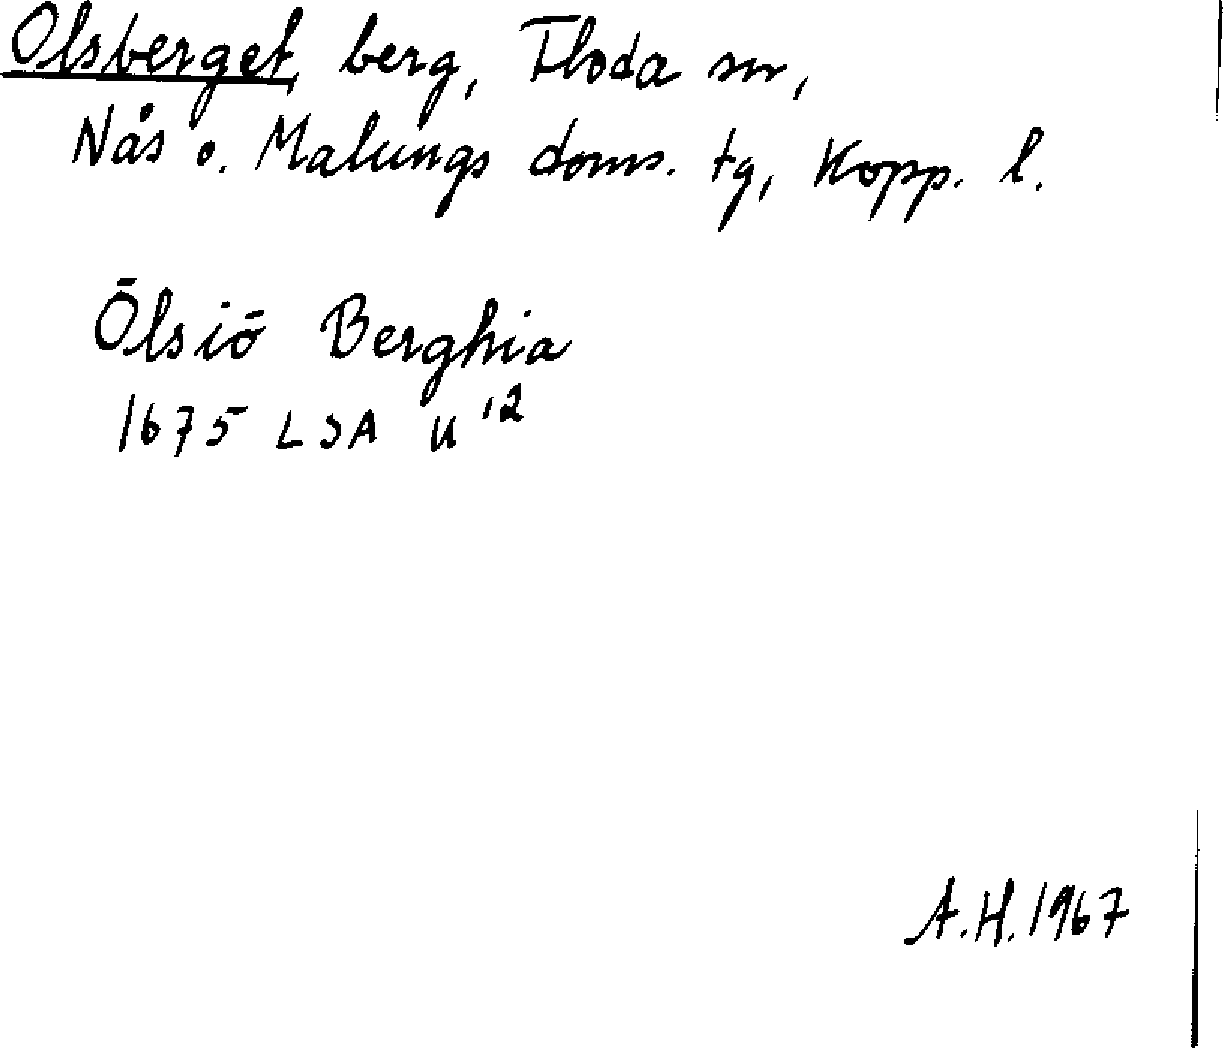 Olsberget, berg, Floda sn,
Nås o. Malungs doms. tg, Kopp. l.
Ölsiö Berghia
1675 LSA U '2
A.H. 1967